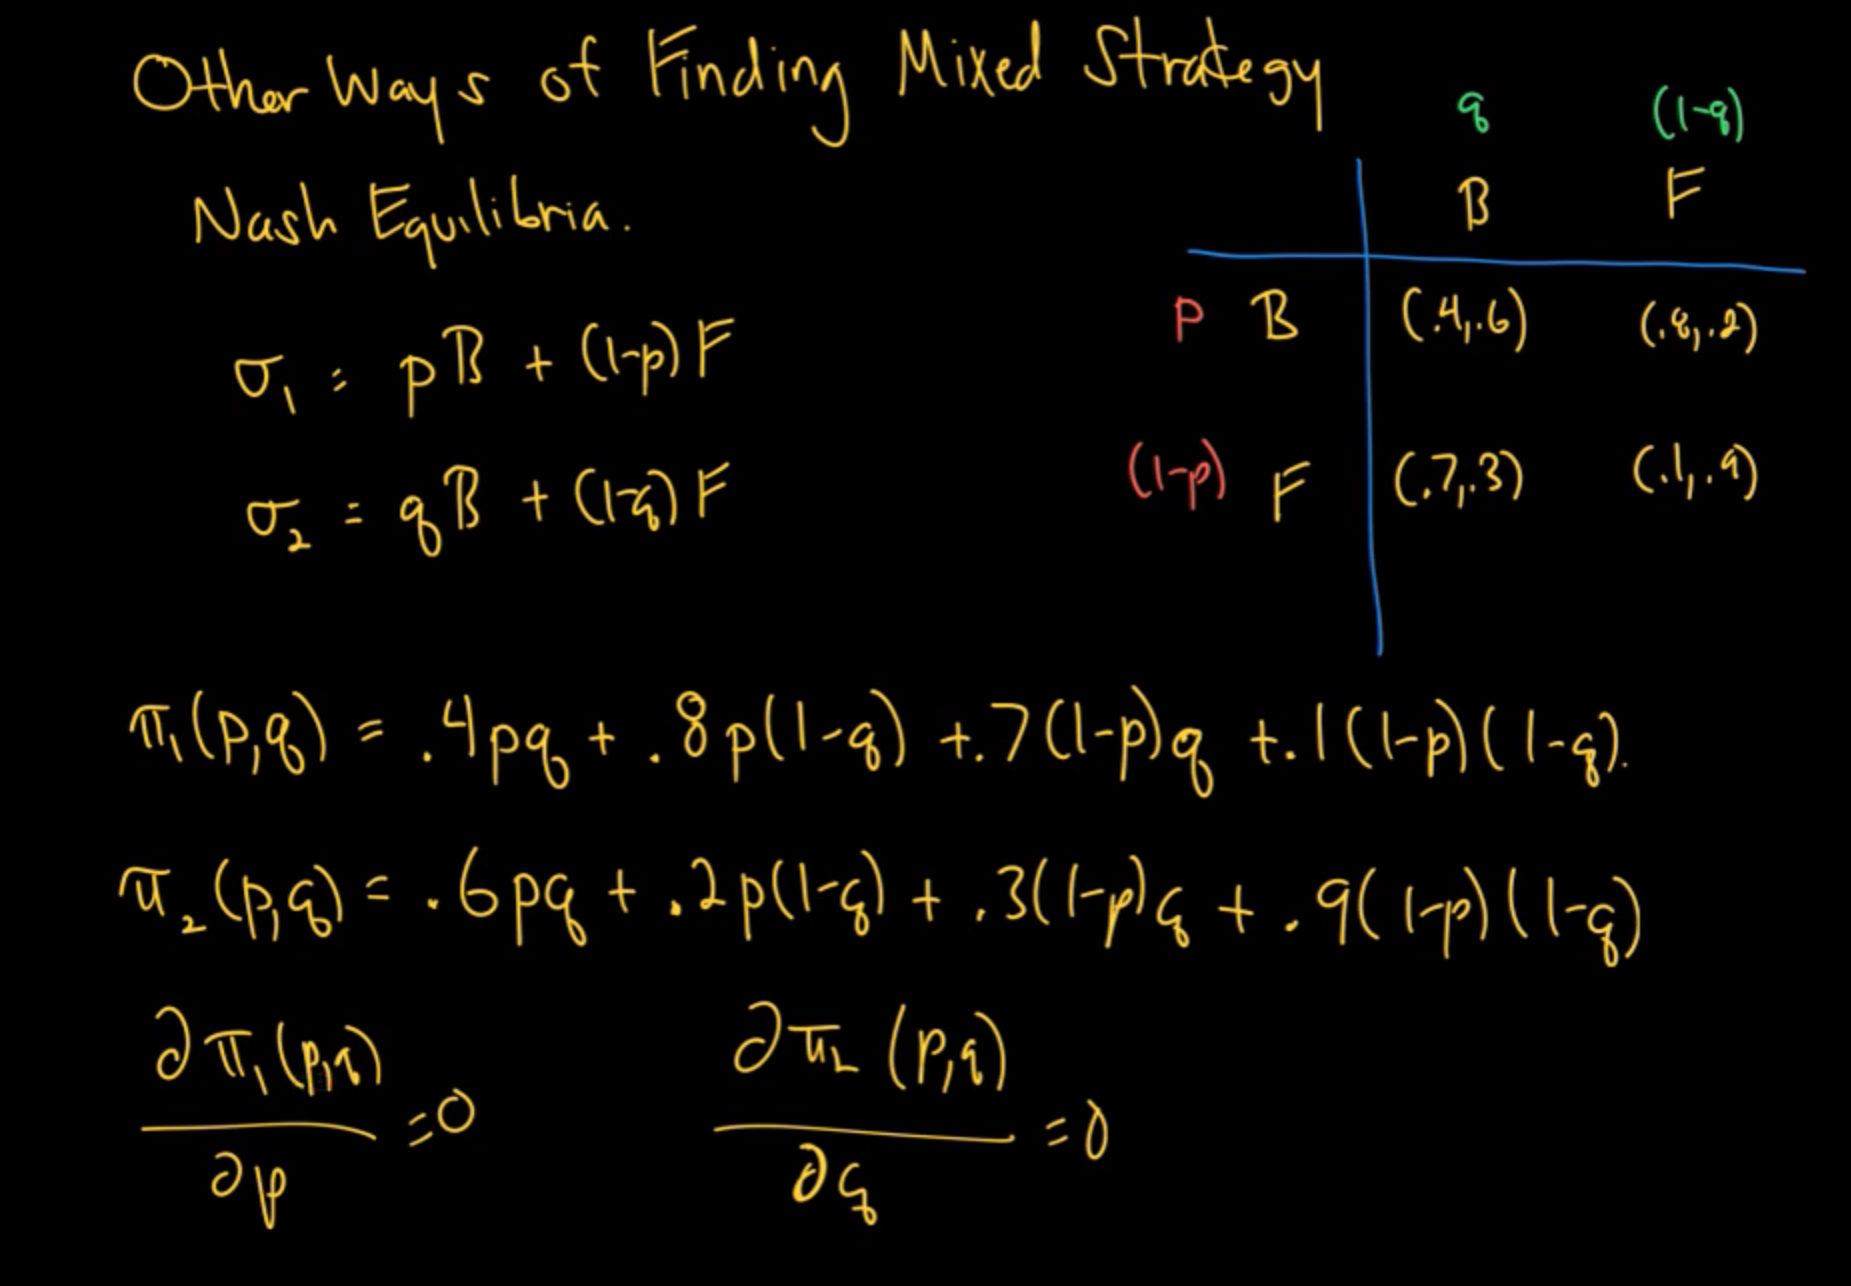 Other Ways of Finding Mixed Strategy
Nash Equilibria.
q (1-q)
B F
p B (.4,.6) (.8,.2)
(1-p) F (.7,.3) (.1,.9)
σ₁ = pB + (1-p)F
σ₂ = qB + (1-q)F
π₁(p,q) = .4pq + .8p(1-q) +.7(1-p)q +.1(1-p)(1-q).
π₂(p,q) = .6pq + .2p(1-q) + .3(1-p)q + .9(1-p)(1-q)
∂π₁(p,q)/∂p =0 ∂π₂(p,q)/∂q =0